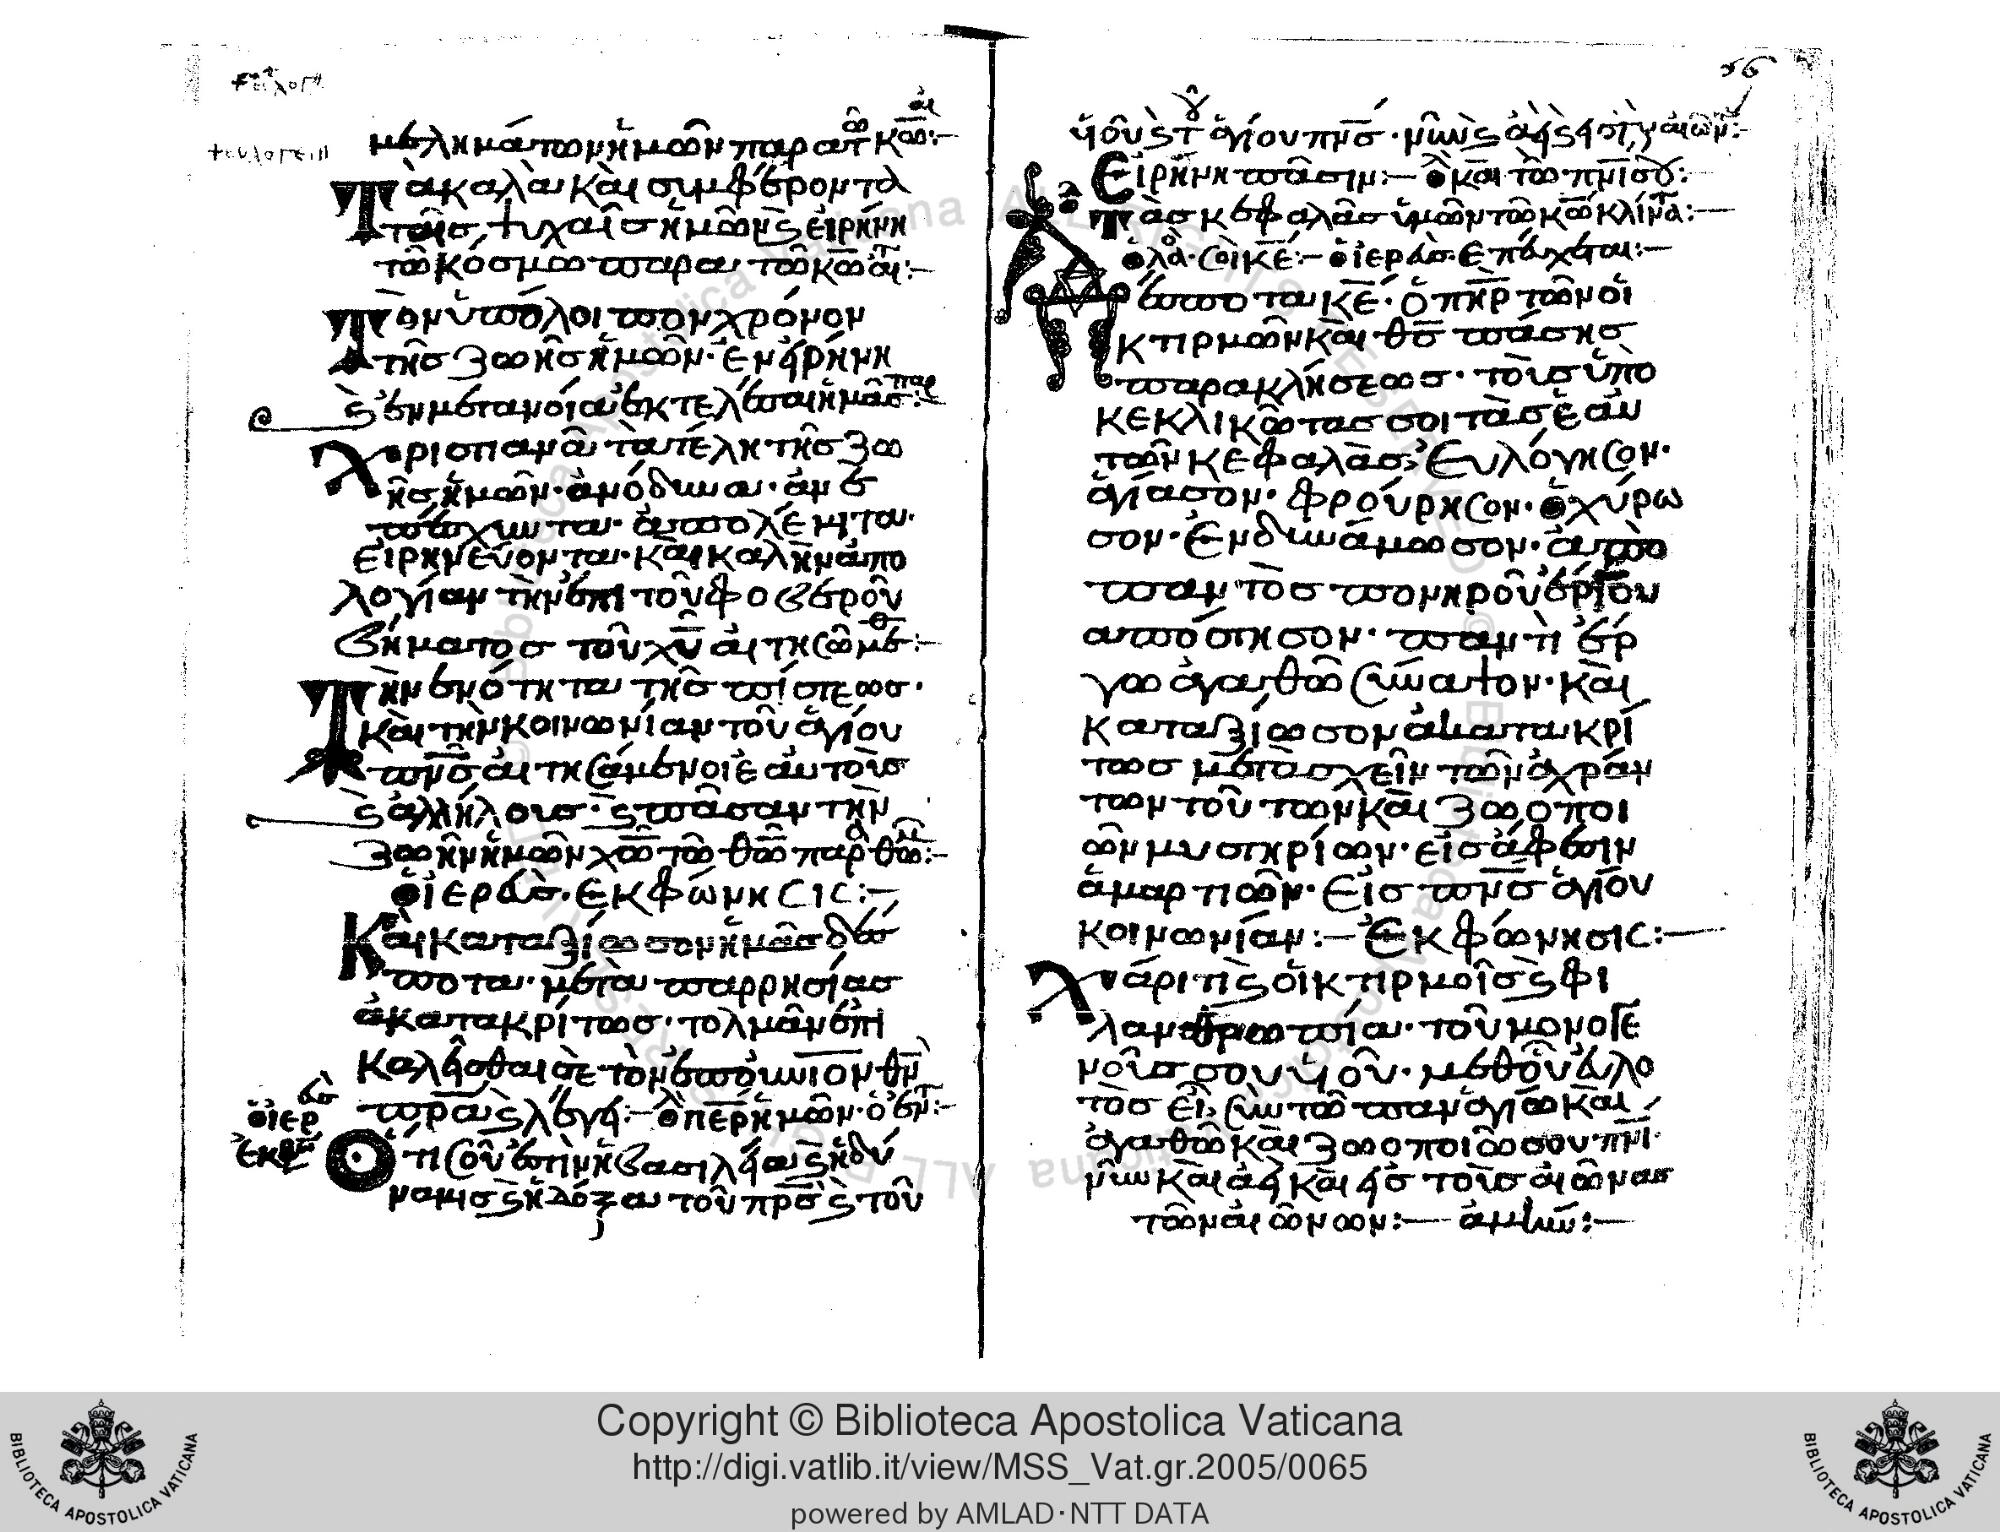 μελημάτων ἡμῶν παρὰ τῶ κω:
Τὰ καλὰ καὶ συμφέροντα
ταῖς ψυχαῖς ἡμῶν ϗ εἰρήνη
τῶ κόσμω παρὰ τῶ κω αι:
Τὸν ὑπόλοιπον χρόνον
τῆς ζωῆς ἡμῶν· ἐν εἰρήνη
ϗ ἐν μετανοία ἐκτελέσαι ἡμᾶς παρ:
Χριστιανὰ τὰ τέλη τῆς ζω
ῆς ἡμῶν· ἀνόδυνα· ἀνε
παίσχυντα·
εἰρηνεύοντα· καὶ καλὴν ἀπο
λογίαν τὴν ἐπὶ τοῦ φοβεροῦ
βήματος τοῦ χυ αἰτησώμεθ:
Τὴν ἑνότητα τῆς πίστεως·
καὶ τὴν κοινωνίαν τοῦ ἁγίου
πνς αἰτησάμενοι ἑαυτοὺς
ϗ ἀλλήλους· ϗ πᾶσαν τὴν
ζωὴν ἡμῶν χω τῶ θω παρ θω:
ὁ ἱερεὺς· ἐκφώνησις:
Καὶ καταξίωσον ἡμᾶς δέσ
ποτα· μετὰ παρρησίας
ἀκατακρίτως· τολμᾶν ἐπι
καλεῖσθαι σὲ τὸν ἐπουνιον θν
πρα ϗ λέγειν: ὁ περ ἡμῶν· ὁ ἐν τ:
ὁ ιερευς
ἐκφω
Ὅτι σοῦ ἐστὶν ἡ βασιλεία ϗ ἡ δύ
ναμις ϗ ἡ δόξα τοῦ πρς ϗ τοῦ
56
υἱοῦ ϗ τ ἁγίου πνς· νῦν ϗ ἀεὶ ϗ εἰς τ αἰων:
Εἰρήνη πᾶσιν: ὁ λα καὶ τῶ πνι σου:
Τὰς κεφαλὰς ὑμῶν τῶ κω κλίνατ:
ὁ λα· σοὶ κε: ὁ ἱερεὺς ἐπεύχεται:
Δέσποτα κε· ὁ πηρ τῶν οἰ
κτιρμῶν καὶ θς πάσης
παρακλήσεως· τοὺς ὑπο
κεκλικότας σοι τὰς ἑαυ
τῶν κεφαλὰς, Εὐλόγησον·
ἁγίασον· φρούρησον· ὀχύρω
σον· Ἐνδυνάμωσον· ἀπο
παντὸς πονηροῦ ἔργου
ἀπόστησον· παντὶ ἔρ
γω ἀγαθῶ σύναψον· καὶ
καταξίωσον ἀκατακρί
τως μετασχεῖν τῶν ἀχράν
των τούτων καὶ ζωοποι
ῶν μυστηρίων· εἰς ἄφεσιν
ἁμαρτιῶν· Εἰς πνς ἁγίου
κοινωνίαν: Ἐκφώνησις:
Χάριτι ϗ οἰκτιρμοῖς ϗ φι
λανθρωπία· τοῦ μονογε
νοῦς σου υἱοῦ· μεθ οὗ εὐλο
γητὸς εἶ, σὺν τῶ παναγίω καὶ
ἀγαθῶ καὶ ζωοποιῶ σου πνι·
νῦν καὶ ἀεὶ καὶ εἰς τοὺς αἰῶνας
τῶν αἰώνων: ἀμήν:
Copyright © Biblioteca Apostolica Vaticana
http://digi.vatlib.it/view/MSS_Vat.gr.2005/0065
powered by AMLAD·NTT DATA
BIBLIOTECA APOSTOLICA VATICANA
BIBLIOTECA APOSTOLICA VATICANA